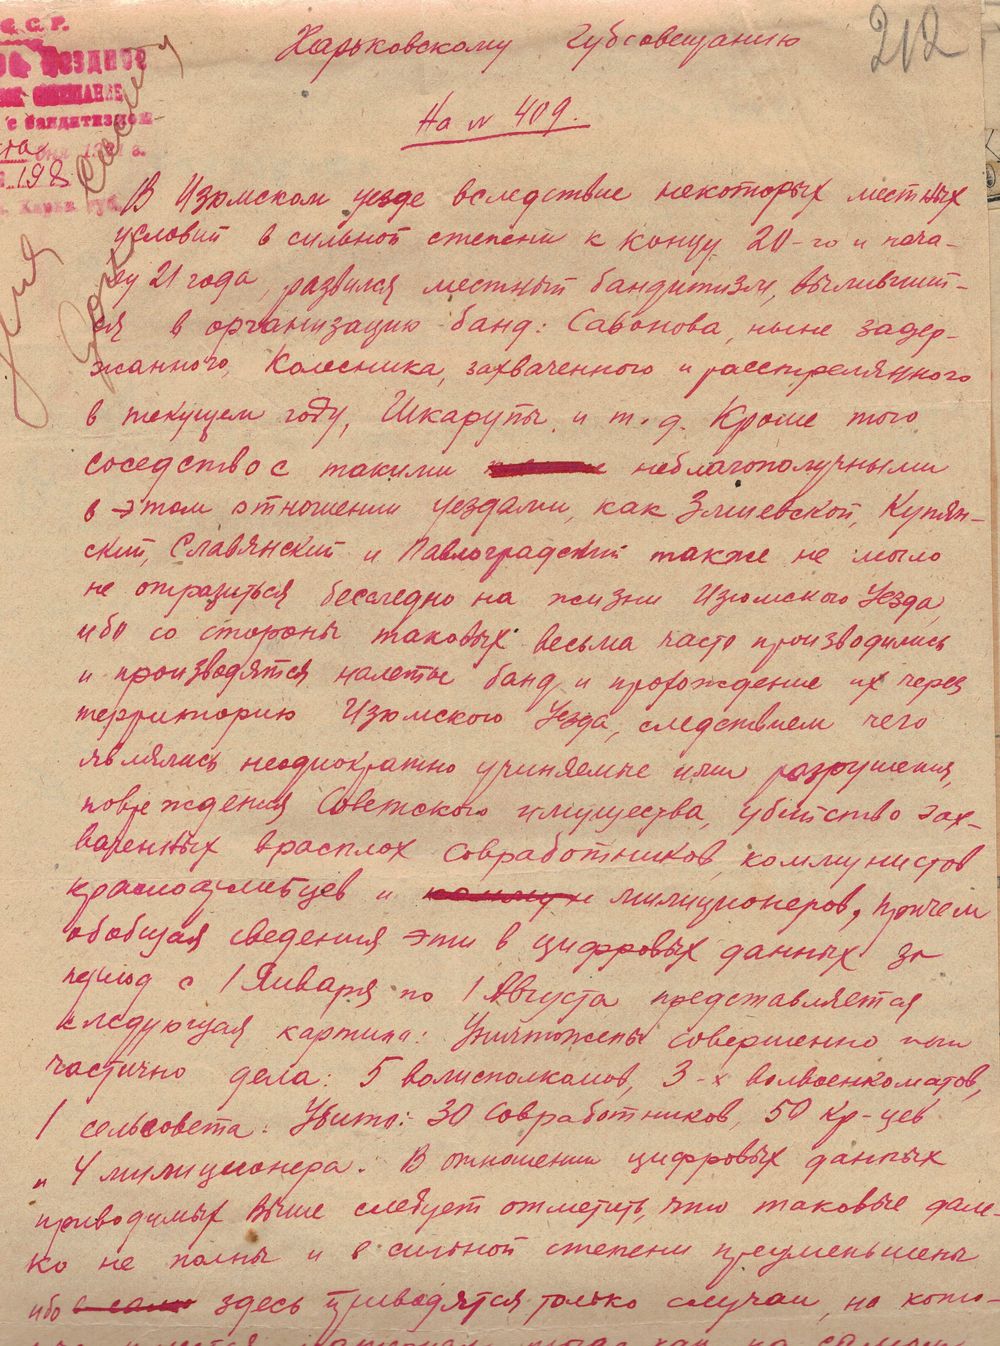 С. С. Р.
212
Харьковскому Губсовещанию
с бандитизмом
На № 409.
198
В Изюмском уезде вследствие некоторых местных
условий в сильной степени к концу 20-го и нача-
лу 21 года, развился местный бандитизм, выливший-
ся в организацию банд: Савонова, ныне задер-
жанного, Колесника, захваченного и расстрелянного
в текущем году, Шкарупы и т. д. Кроме того
соседство с такими неблагополучными
в этом отношении уездами, как Змиевской, Купян-
ский, Славянский и Павлоградский также не могло
не отразиться бесследно на жизни Изюмского Уезда,
ибо со стороны таковых весьма часто производились
и производятся налеты банд и прохождение их через
территорию Изюмского Уезда, следствием чего
являлись неоднократно учиняемые ими разрушения,
повреждения Советского имущества, убийство зах-
ваченных врасплох совработников, коммунистов
красноармейцев и милиционеров, причем
обобщая сведения эти в цифровых данных за
период с 1 Января по 1 Августа представляется
следующая картина: Уничтожены совершенно или
частично дела: 5 волисполкомов, 3-х волвоенкоматов,
1 сельсовета. Убито: 30 Совработников, 50 кр-цев
и 4 милиционера. В отношении цифровых данных
приводимых выше следует отметить, что таковые дале-
ко не полны и в сильной степени преуменьшены
ибо здесь приводятся только случаи, на кото-